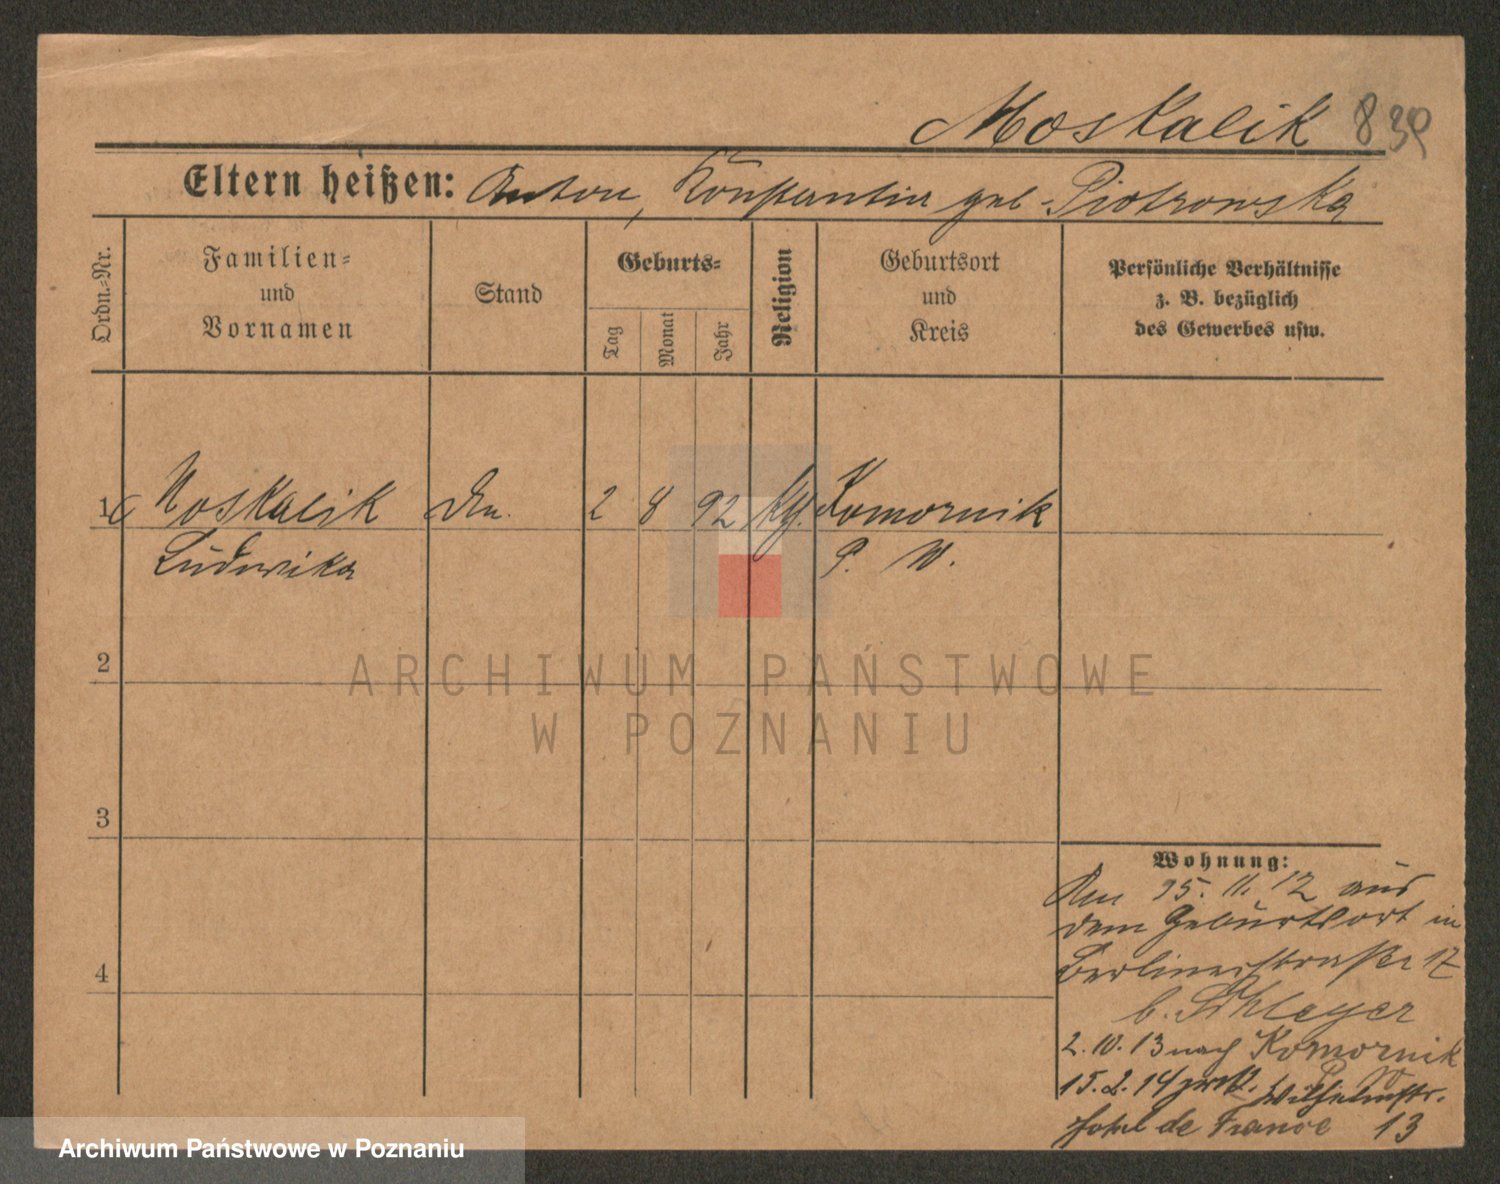 Moskalik 839
Eltern heißen: Anton, Konstantin geb. Piotrowska
Ordn.-Nr.
Familien-
und
Vornamen
Stand
Geburts-
Tag
Monat
Jahr
Religion
Geburtsort
und
Kreis
Persönliche Verhältnisse
z. B. bezüglich
des Gewerbes usw.
1 Moskalik 2 8 92 Komornik
Ludwika P. W.
2
ARCHIWUM PAŃSTWOWE
W POZNANIU
3
4
Wohnung:
Am 25. 11. 12 aus
dem Geburtsort in
Berlinerstraße 17
b. Schleyer
2. 10. 13 nach Komornik
P W
15. 2. 14 zurück. Wilhelmstr.
Hotel de France 13
Archiwum Państwowe w Poznaniu